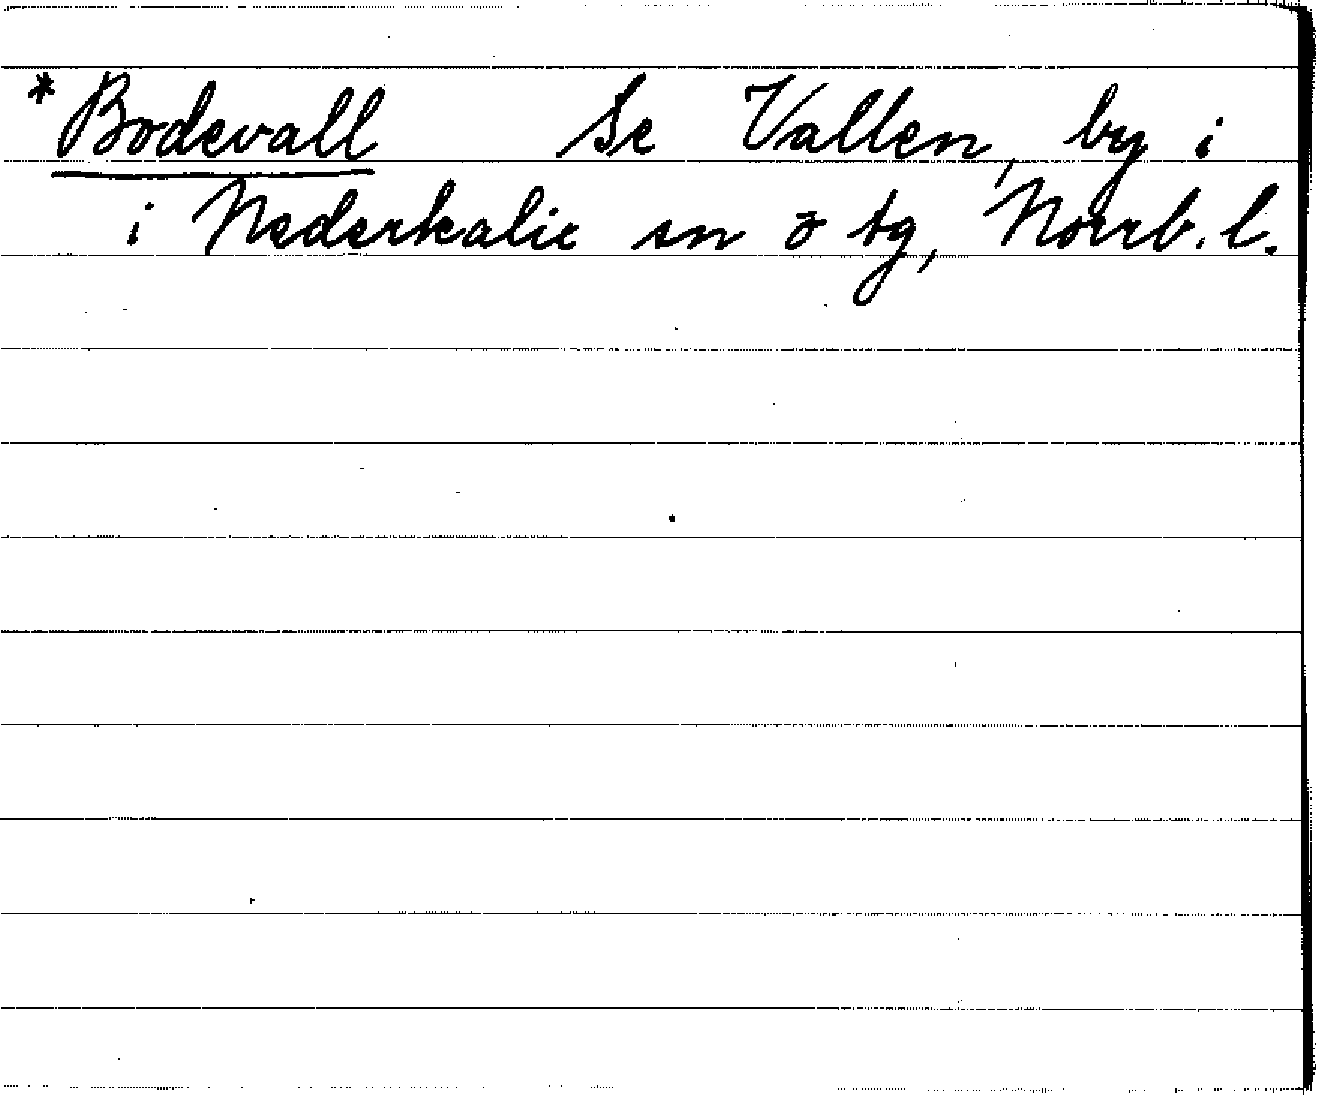 *Bodevall Se Vallen, by i
i Nederkalix sn o tg, Norrb. l.